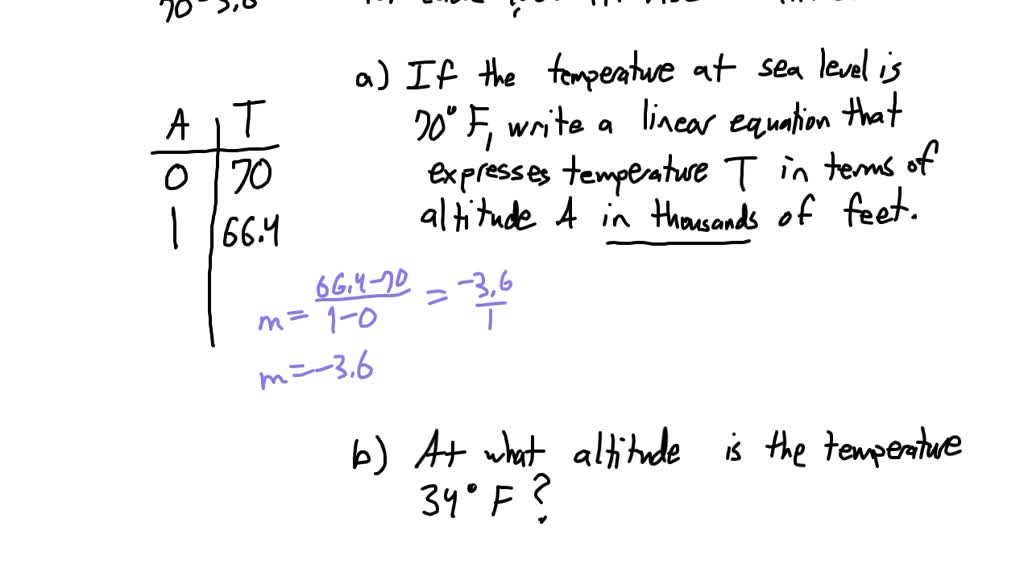 70-3.6
a) If the temperature at sea level is
70° F, write a linear equation that
expresses temperature T in terms of
altitude A in thousands of feet.
A T
0 70
1 66.4
m = 66.4-70 / 1-0 = -3.6 / 1
m = -3.6
b) At what altitude is the temperature
34° F?